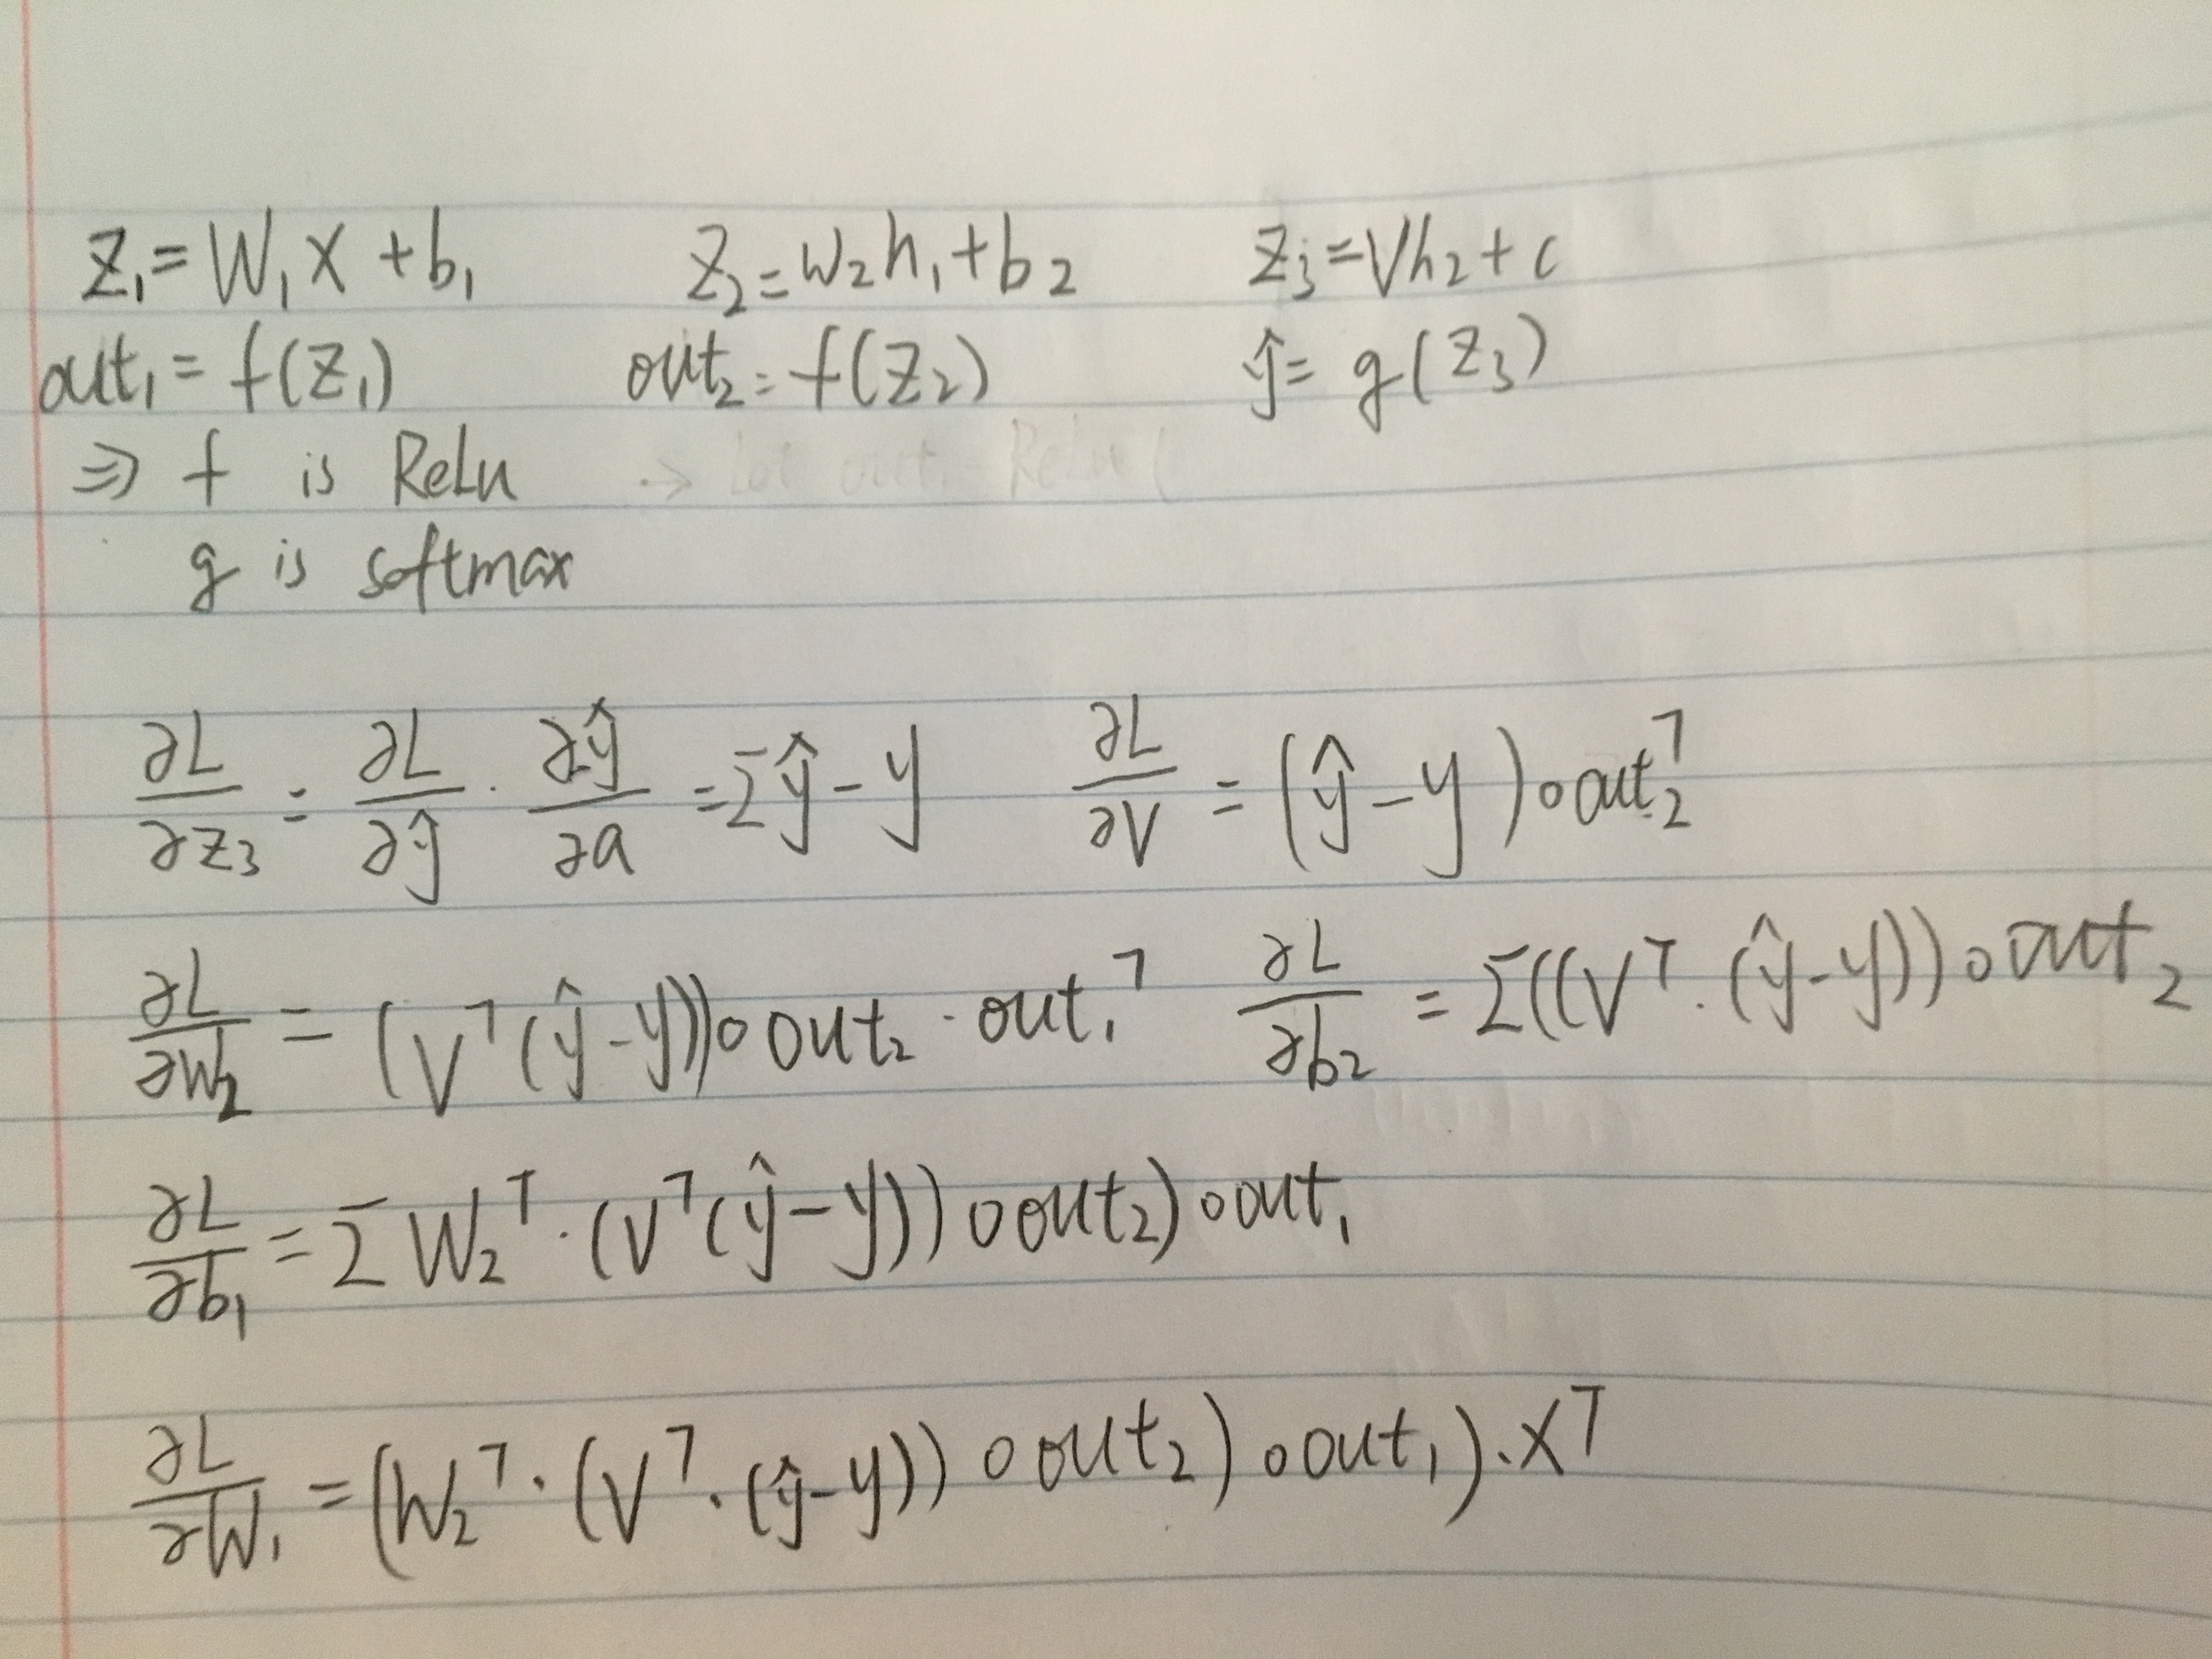 z₁ = W₁x + b₁ z₂ = w₂h₁ + b₂ z₃ = Vh₂ + c
out₁ = f(z₁) out₂ = f(z₂) ŷ = g(z₃)
⇒ f is Relu
g is softmax
∂L/∂z₃ : ∂L/∂ŷ · ∂ŷ/∂a = Σ ŷ - y ∂L/∂V = (ŷ - y) ∘ out₂ᵀ
∂L/∂W₂ = (Vᵀ(ŷ - y)) ∘ out₂ · out₁ᵀ ∂L/∂b₂ = Σ((Vᵀ · (ŷ - y)) ∘ out₂
∂L/∂b₁ = Σ W₂ᵀ · (Vᵀ(ŷ - y)) ∘ out₂) ∘ out₁
∂L/∂W₁ = (W₂ᵀ · (Vᵀ · (ŷ - y)) ∘ out₂) ∘ out₁) · xᵀ